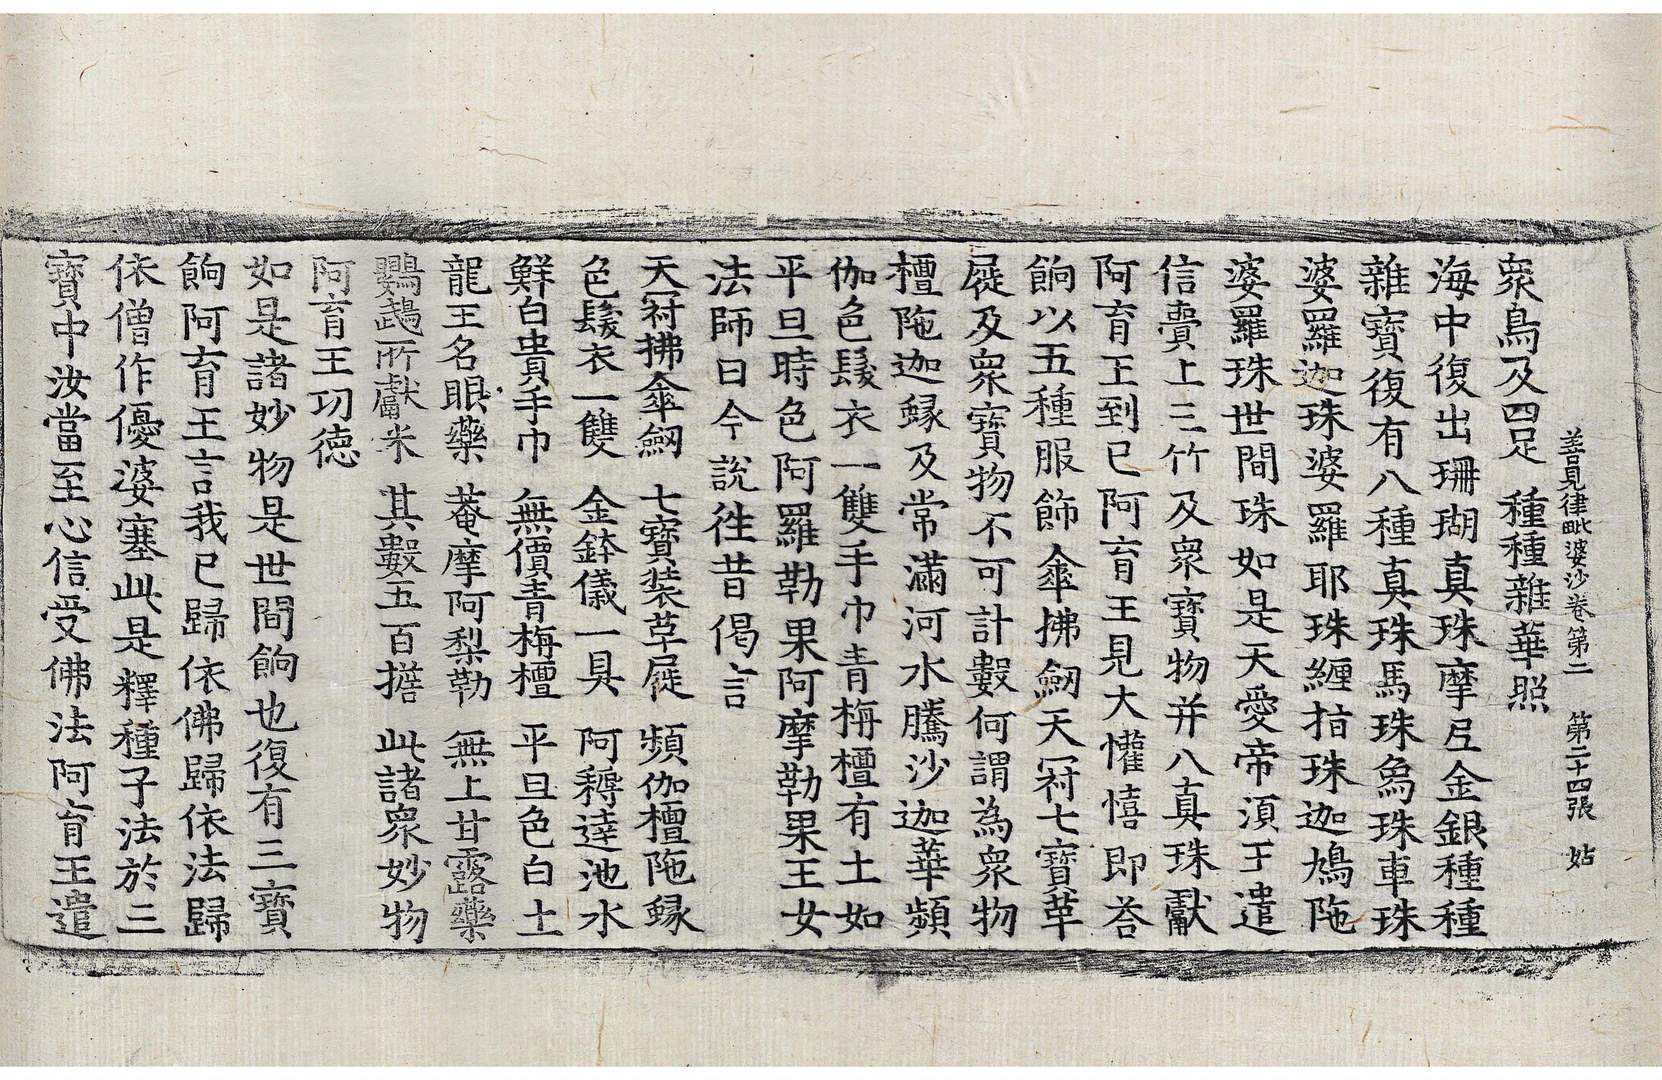 善見律毗婆沙卷第二　第二十四張　姑
衆鳥及四足　種種雜華照
海中復出珊瑚真珠摩尼金銀種種
雜寶復有八種真珠馬珠象珠車珠
婆羅迦珠婆羅耶珠纏指珠迦鳩陁
婆羅珠世間珠如是天愛帝湏王遣
信賷上三竹及衆寶物并八真珠獻
阿育王到已阿育王見大懽憘即荅
餉以五種服飾傘拂劒天冠七寶革
屣及衆寶物不可計數何謂為衆物
檀陁迦緑及常滿河水騰沙迦華頻
伽色鬘衣一雙手巾青栴檀有土如
平旦時色阿羅勒果阿摩勒果王女
法師曰今說徃昔偈言
天冠拂傘劒　七寶裝革屣　頻伽檀陁緑
色鬘衣一雙　金鉢儀一具　阿耨達池水
鮮白貴手巾　無價青栴檀　平旦色白土
龍王名眼藥　菴摩阿梨勒　無上甘露藥
鸚鵡所獻米　其數五百擔　此諸衆妙物
阿育王功德
如是諸妙物是世間餉也復有三寶
餉阿育王言我已歸依佛歸依法歸
依僧作優婆塞此是釋種子法於三
寶中汝當至心信受佛法阿育王遣